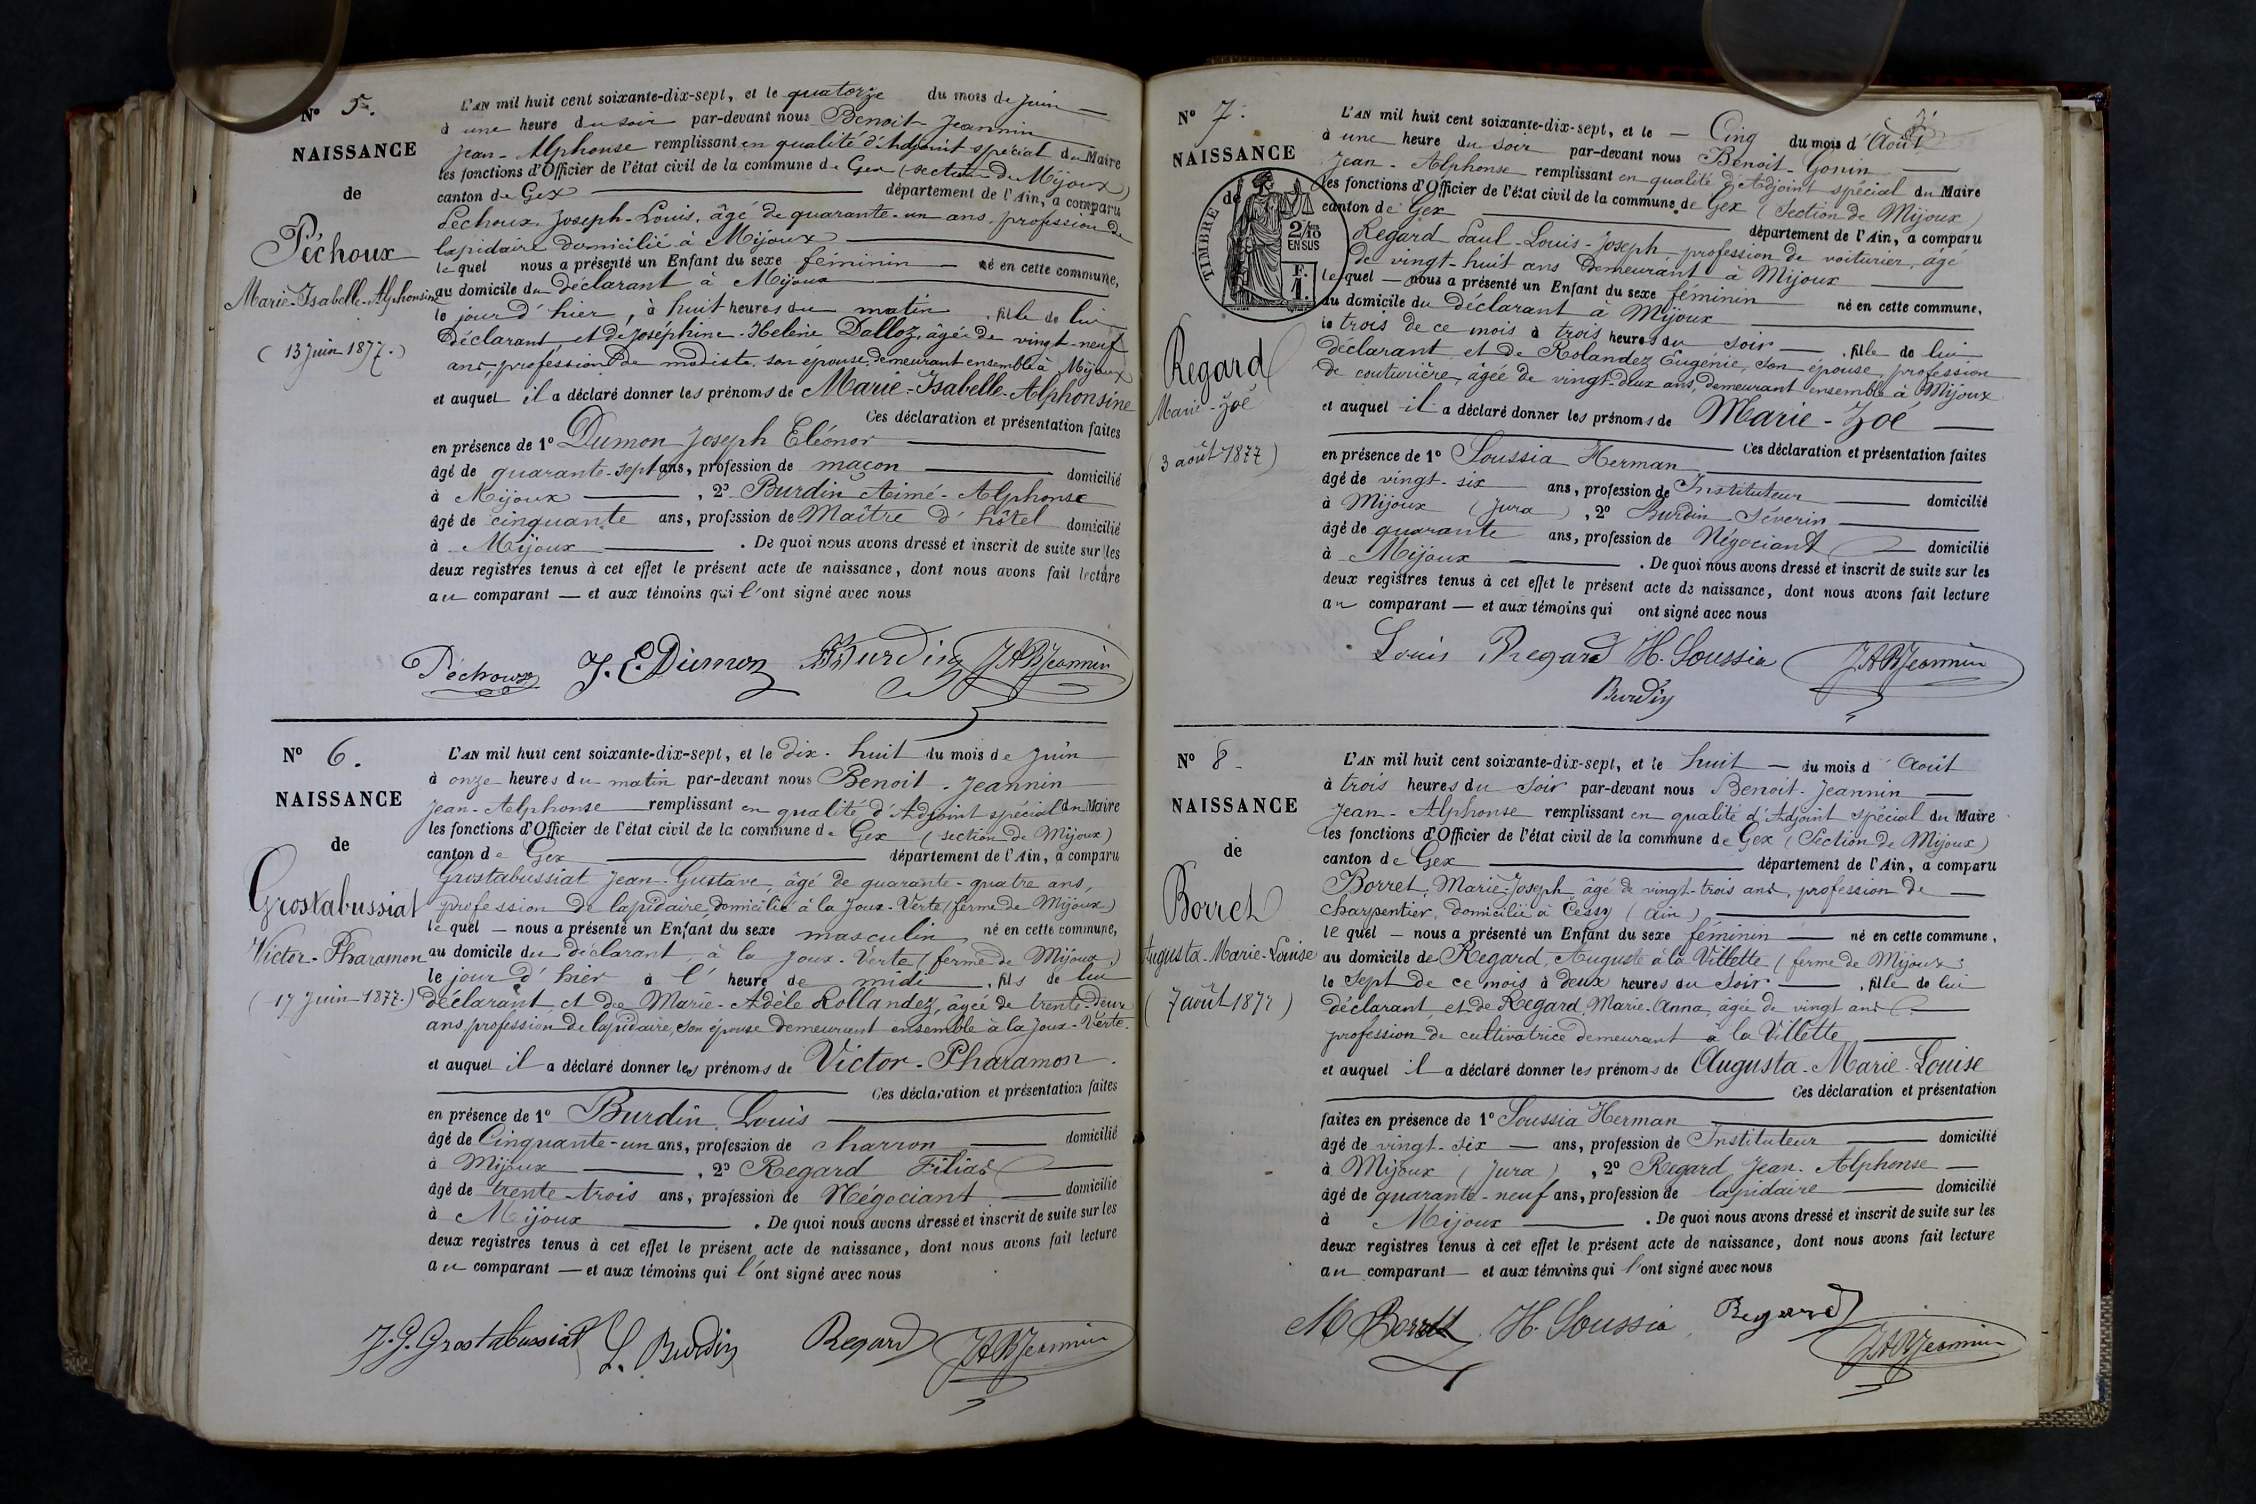 N° 5.
NAISSANCE
de
Péchoux
Marie-Isabelle-Alphonsine
(13 Juin 1877.)
L'AN mil huit cent soixante-dix-sept, et le quatorze du mois de Juin
à une heure du soir par-devant nous Benoit-Jeannin
Jean-Alphonse remplissant en qualité d'Adjoint spécial du Maire
les fonctions d'Officier de l'état civil de la commune de Gex (section de Mijoux)
canton de Gex département de l'Ain, a comparu
Péchoux Joseph-Louis, âgé de quarante-un ans, profession de
lapidaire domicilié à Mijoux
lequel nous a présenté un Enfant du sexe féminin né en cette commune,
au domicile du déclarant à Mijoux
le jour d'hier, à huit heures du matin, fille de lui
déclarant et de Joséphine-Helène Dalloz, âgée de vingt-neuf
ans, profession de modiste, son épouse, demeurant ensemble à Mijoux
et auquel il a déclaré donner les prénoms de Marie-Isabelle-Alphonsine
Ces déclaration et présentation faites
en présence de 1° Dumon Joseph Eléonor
âgé de quarante-sept ans, profession de maçon domicilié
à Mijoux, 2° Burdin Aimé-Alphonse
âgé de cinquante ans, profession de Maître d'hôtel domicilié
à Mijoux. De quoi nous avons dressé et inscrit de suite sur les
deux registres tenus à cet effet le présent acte de naissance, dont nous avons fait lecture
au comparant — et aux témoins qui l'ont signé avec nous
Péchoux J. E. Dumon Burdin JABJeannin
N° 6.
NAISSANCE
de
Grostabussiat
Victor-Pharamon
(17 Juin 1877.)
L'AN mil huit cent soixante-dix-sept, et le dix-huit du mois de Juin
à onze heures du matin par-devant nous Benoit-Jeannin
Jean-Alphonse remplissant en qualité d'Adjoint spécial du Maire
les fonctions d'Officier de l'état civil de la commune de Gex (section de Mijoux)
canton de Gex département de l'Ain, a comparu
Grostabussiat Jean-Gustave, âgé de quarante-quatre ans,
profession de lapidaire, domicilié à la Joux-Verte (ferme de Mijoux)
lequel — nous a présenté un Enfant du sexe masculin né en cette commune,
au domicile du déclarant, à la Joux-Verte (ferme de Mijoux)
le jour d'hier à l'heure de midi, fils de lui
déclarant et de Marie-Adèle Rollandez, âgée de trente-deux
ans profession de lapidaire, son épouse demeurant ensemble à la Joux-Verte.
et auquel il a déclaré donner les prénoms de Victor-Pharamon.
Ces déclaration et présentation faites
en présence de 1° Burdin Louis
âgé de Cinquante-un ans, profession de charron domicilié
à Mijoux, 2° Regard Félias
âgé de trente-trois ans, profession de Négociant domicilié
à Mijoux. De quoi nous avons dressé et inscrit de suite sur les
deux registres tenus à cet effet le présent acte de naissance, dont nous avons fait lecture
au comparant — et aux témoins qui l'ont signé avec nous
J. G. Grostabussiat L. Burdin Regard JABJeannin
7
N° 7.
NAISSANCE
de
TIMBRE
2/10 EN SUS
F. 1.
Regard
Marie-Zoé
(3 août 1877)
L'AN mil huit cent soixante-dix-sept, et le — Cinq du mois d'Août
à une heure du soir par-devant nous Benoit-Jeannin
Jean-Alphonse remplissant en qualité d'Adjoint spécial du Maire
les fonctions d'Officier de l'état civil de la commune de Gex (Section de Mijoux)
canton de Gex département de l'Ain, a comparu
Regard Paul-Louis-Joseph, profession de voiturier, âgé
de vingt-huit ans demeurant à Mijoux
lequel — nous a présenté un Enfant du sexe féminin né en cette commune,
au domicile du déclarant à Mijoux
le trois de ce mois à trois heures du soir, fille de lui
déclarant et de Rolandez Eugénie, son épouse, profession
de couturière, âgée de vingt-deux ans, demeurant ensemble à Mijoux
et auquel il a déclaré donner les prénoms de Marie-Zoé
Ces déclaration et présentation faites
en présence de 1° Soussia Herman
âgé de vingt-six ans, profession de Instituteur domicilié
à Mijoux (Jura), 2° Burdin Séverin
âgé de quarante ans, profession de Négociant domicilié
à Mijoux. De quoi nous avons dressé et inscrit de suite sur les
deux registres tenus à cet effet le présent acte de naissance, dont nous avons fait lecture
au comparant — et aux témoins qui ont signé avec nous
Louis Regard H. Soussia JABJeannin
Burdin
N° 8
NAISSANCE
de
Borret
Augusta-Marie-Louise
(7 août 1877)
L'AN mil huit cent soixante-dix-sept, et le huit — du mois d'Août
à trois heures du soir par-devant nous Benoit-Jeannin
Jean-Alphonse remplissant en qualité d'Adjoint spécial du Maire
les fonctions d'Officier de l'état civil de la commune de Gex (Section de Mijoux)
canton de Gex département de l'Ain, a comparu
Borret Marie-Joseph âgé de vingt-trois ans, profession de
charpentier, domicilié à Cessy (Ain)
lequel — nous a présenté un Enfant du sexe féminin né en cette commune,
au domicile de Regard, Auguste à la Villette (ferme de Mijoux)
le sept de ce mois à deux heures du soir, fille de lui
déclarant et de Regard Marie-Anna, âgée de vingt ans
profession de cultivatrice demeurant à la Villette
et auquel il a déclaré donner les prénoms de Augusta-Marie-Louise
Ces déclaration et présentation
faites en présence de 1° Soussia Herman
âgé de vingt-six — ans, profession de Instituteur domicilié
à Mijoux (Jura), 2° Regard Jean-Alphonse
âgé de quarante-neuf ans, profession de lapidaire domicilié
à Mijoux. De quoi nous avons dressé et inscrit de suite sur les
deux registres tenus à cet effet le présent acte de naissance, dont nous avons fait lecture
au comparant — et aux témoins qui l'ont signé avec nous
M Borret H. Soussia Regard JABJeannin